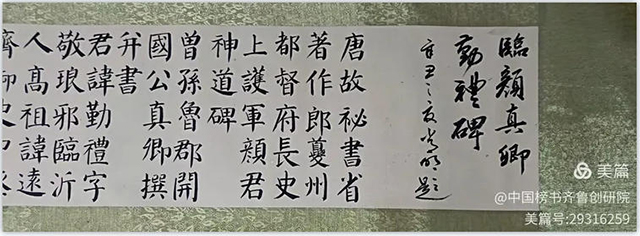 臨顏真卿
勤禮碑
唐故祕書省
著作郎夔州
都督府長史
上護軍顏君
神道碑
曾孫魯郡開
國公真卿撰
并書
君諱勤禮字
敬琅邪臨沂
人高祖諱遠
齊御史中丞
美篇
@中国榜书齐鲁创研院
美篇号:29316259